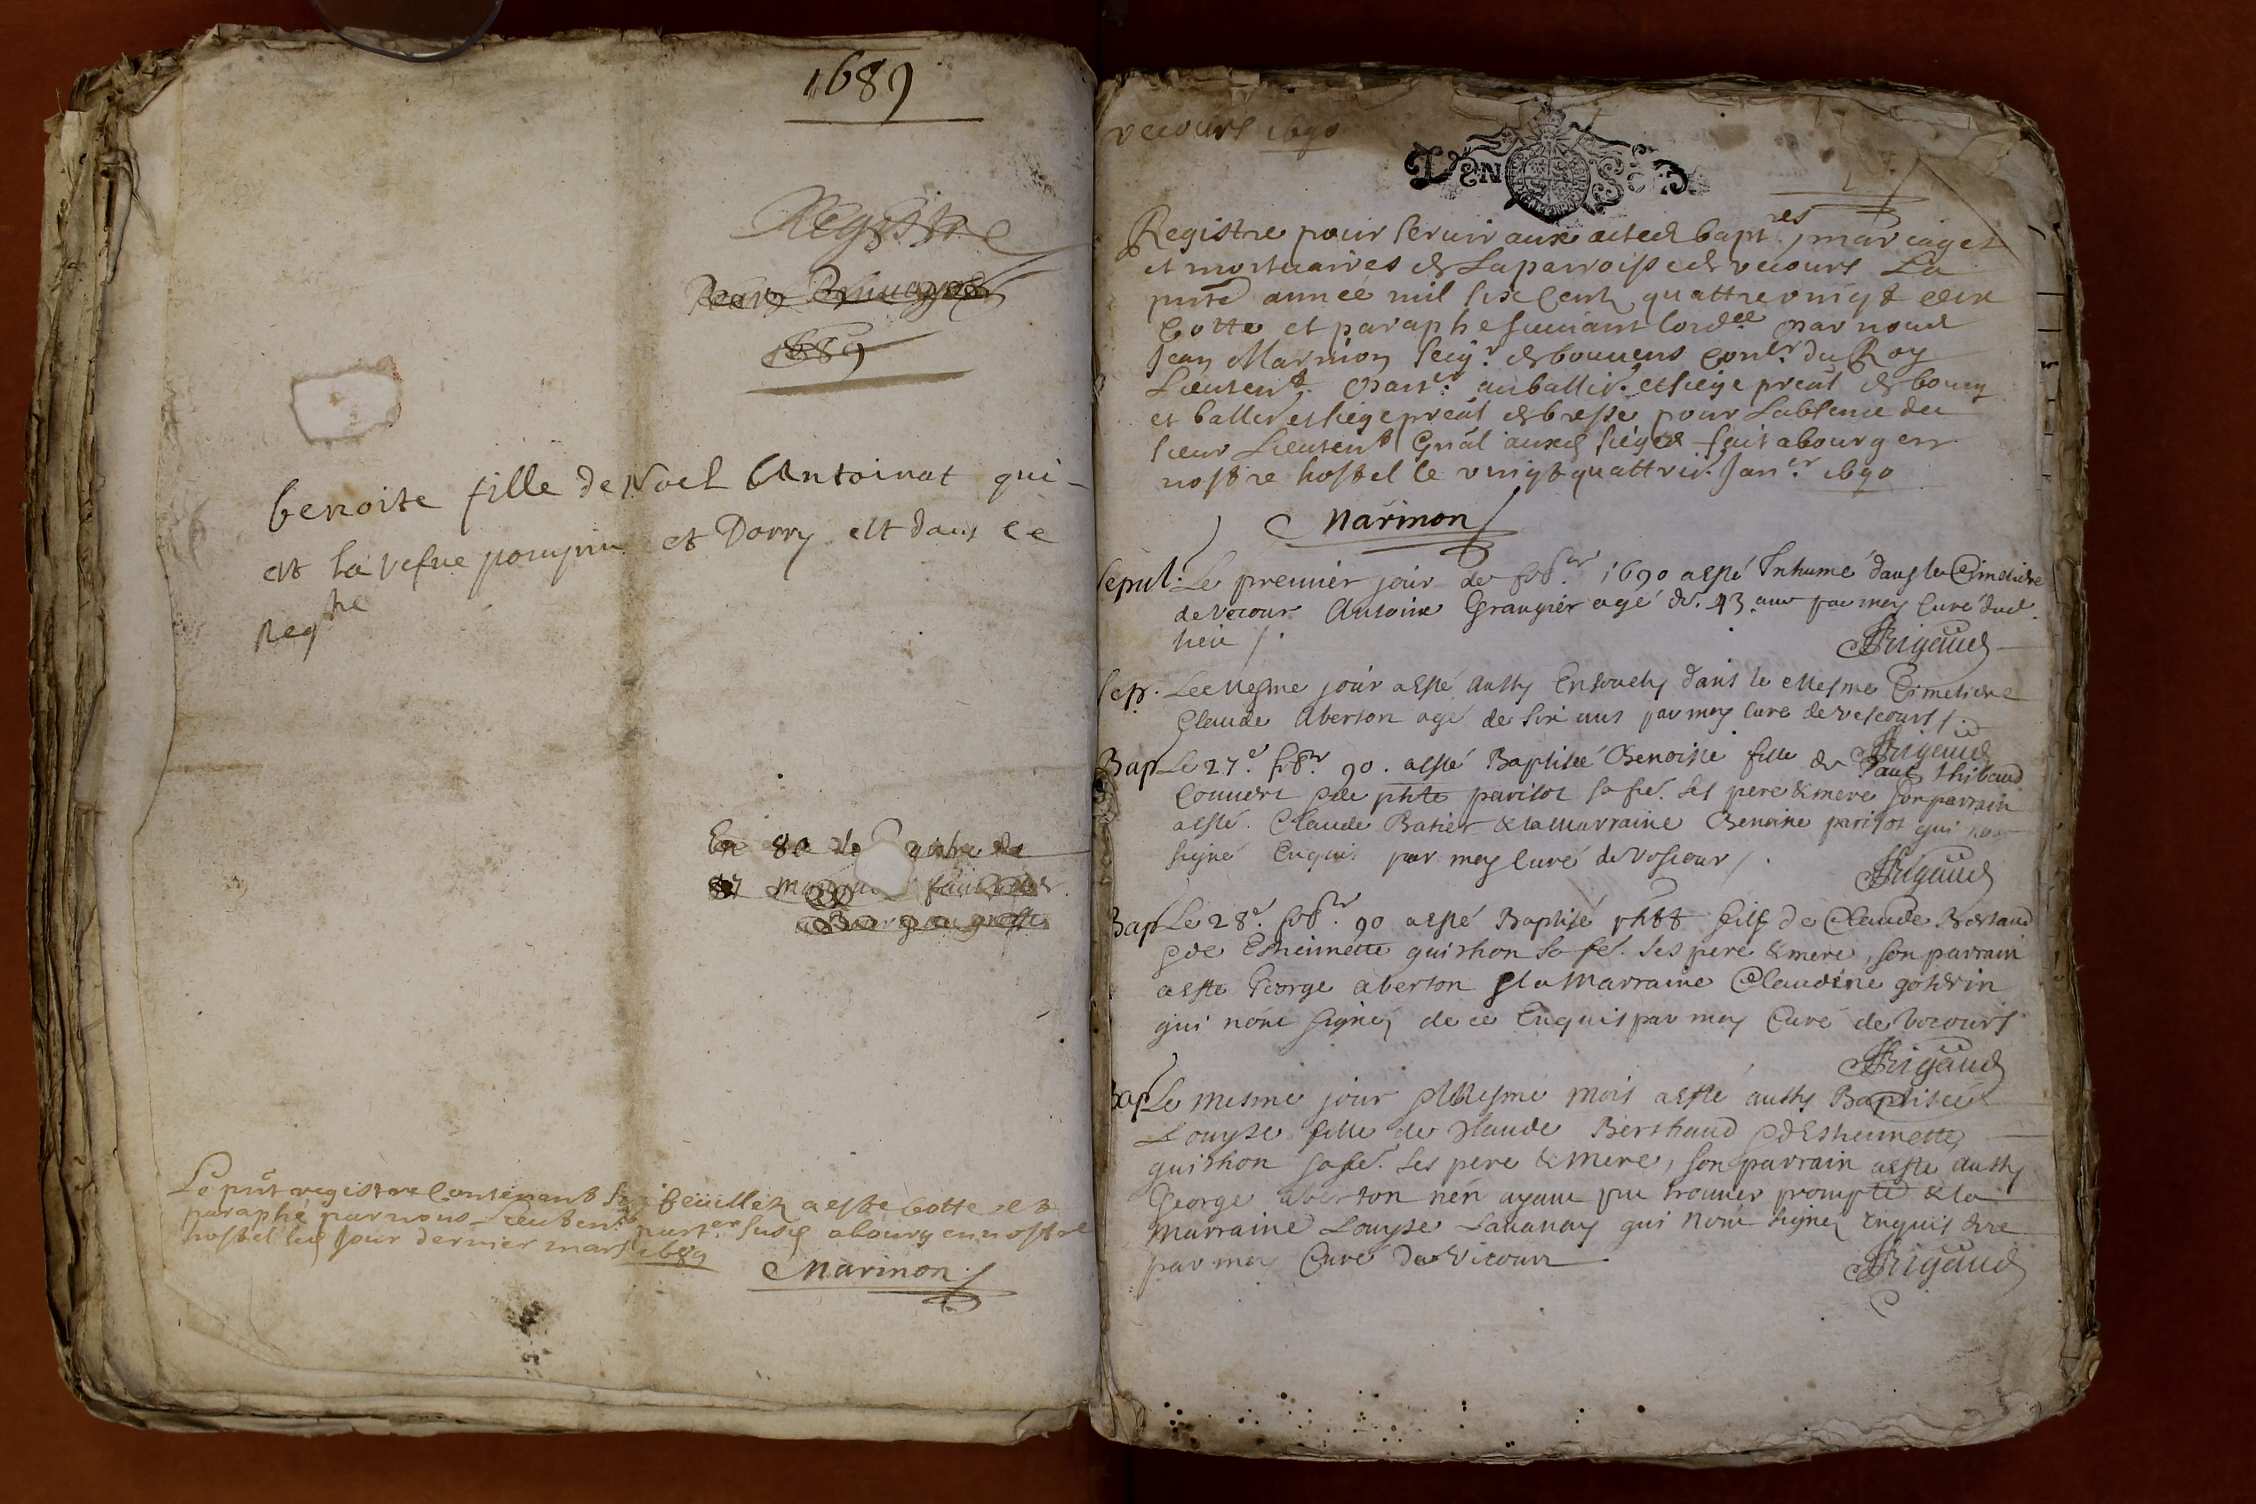 1689
Registre
1689
benoite fille de Noel Antoinat qui
est la vefve et Dorry est dans ce
Reg tre
En 80
Le pnt registre contenant feuillets a esté cotté et
paraphé par nous Lieutent part.er susd a bourg en nostre
hostel led jour dernier mars 1689
Marinon
vecours 1690
DEN
Registre pour servir aux actes bapt.res, mariages
et mortuaires de la parroisse de vecours La
pnte année mil six cent quattre vingt dix
Cotte et paraphé suivant lord.ce par nous
Jean Marinon Seig.r de bouvens con.er du Roy
Lieuten.t part.er au balliv. et siege preal de bourg
et balliv et siege preal de bresse pour Labsence du
sieur Lieuten.t Gnal auxd sieges fait a bourg en
nostre hostel le vingt quattrie. Jan.er 1690
Marinon
Sepul. Le premier jour de feb.er 1690 a esté Inhumé dans le Cimetiere
de Vecour Antoine Grangier agé de 43 ans par moy Curé dud
lieu /.
Rigaud
Sep. Le Mesme jour a esté aussy Ensevely dans le Mesme Cimetiere
Claude Aberton agé de six ans par moy Curé de Vescours /.
Rigaud
Bap Le 27.e feb.er 90. a esté Baptisée Benoiste fille de Paul Thibaud
parisot sa fe. ses pere & mere son parrain
a esté Claude Batier & la Marraine Benoine parisot qui
signé Enquis par moy Curé de Vescour /.
Rigaud
Bap Le 28.e feb.er 90 a esté Baptisé phbt fils de Claude Bertaud
& de Estheinnette guishon sa fe. ses pere & mere, son parrain
a esté George aberton & la Marraine Claudine gohrin
qui nont signé de ce Enquis par moy Curé de Vecours
Rigaud
Bap Le mesme jour & Mesme Mois a esté aussy Baptisée
Louyse fille de Claude Berthaud & dEstheinnette
guishon sa fe. ses pere & mere, son parrain a esté aussy
George aberton nen ayant pu trouver prompte & la
Marraine Louyse Lavanay qui nont signé Enquis
par moy Curé de Vicour
Rigaud